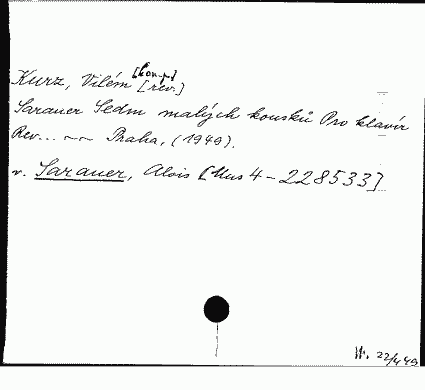 [komp]
Kurz, Vilém [rev.]
Sarauer Sedm malých kousků Pro klavír
Rev... ~~ Praha, (1949).
v. Sarauer, Alois [Mus 4-228533]
22/449